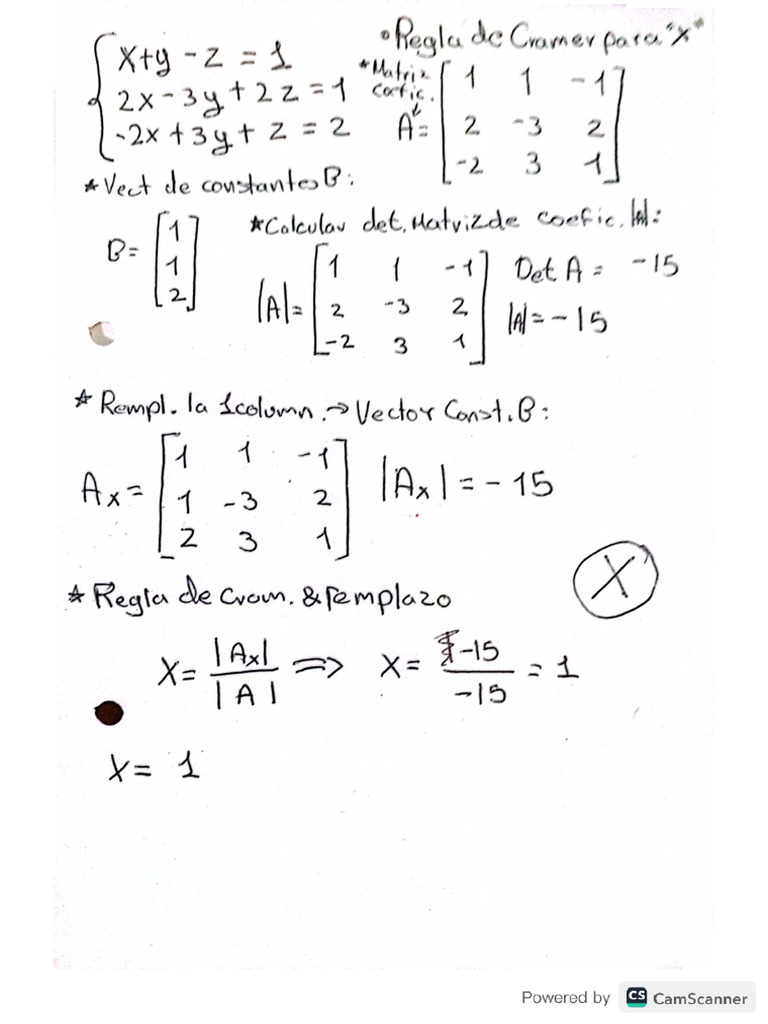 ° Regla de Cramer para "x"
x+y-z=1
2x-3y+2z=1
-2x+3y+z=2
* Matriz
coefic.
A=
1 1 -1
2 -3 2
-2 3 1
* Vect de constantes B:
B=
1
1
2
* Calcular det. Matriz de coefic. |A|:
|A|=
1 1 -1
2 -3 2
-2 3 1
Det A = -15
|A|=-15
* Rempl. la 1column. → Vector Const. B:
Ax=
1 1 -1
1 -3 2
2 3 1
|Ax| = -15
* Regla de Cram. & remplazo
X
X= |Ax| / |A| ⇒ X= -15 / -15 = 1
X= 1
Powered by CS CamScanner